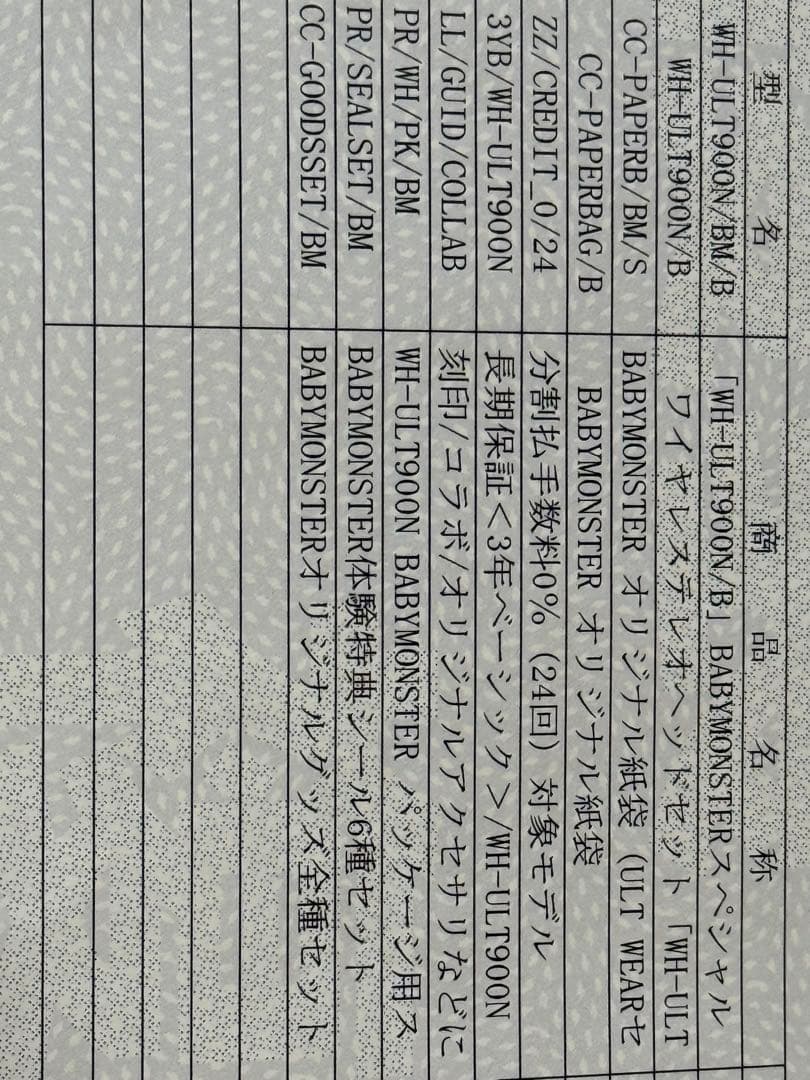 型名 商品名称
WH-ULT900N/BM/B 「WH-ULT900N/B」BABYMONSTERスペシャル
WH-ULT900N/B ワイヤレスステレオヘッドセット「WH-ULT
CC-PAPERB/BM/S BABYMONSTER オリジナル紙袋（ULT WEARセ
CC-PAPERBAG/B BABYMONSTER オリジナル紙袋
ZZ/CREDIT_0/24 分割払手数料0%（24回）対象モデル
3YB/WH-ULT900N 長期保証＜3年ベーシック＞/WH-ULT900N
LL/GUID/COLLAB 刻印/コラボ/オリジナルアクセサリなどに
PR/WH/PK/BM WH-ULT900N BABYMONSTER パッケージ用ス
PR/SEALSET/BM BABYMONSTER体験特典シール6種セット
CC-GOODSSET/BM BABYMONSTERオリジナルグッズ全種セット